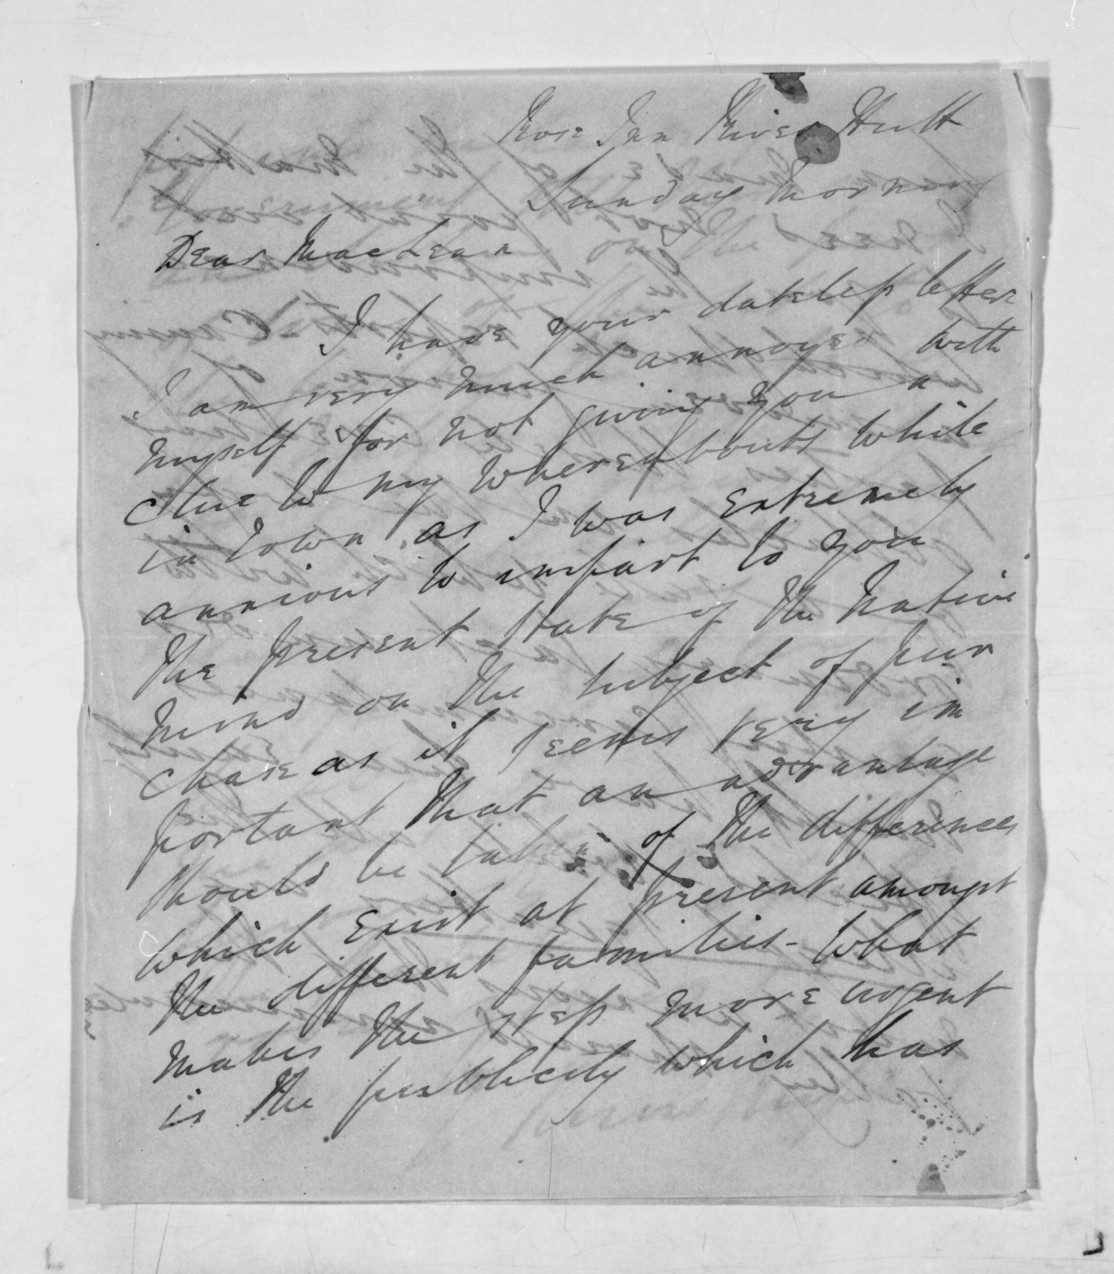 Rose Inn River Hutt
Sunday Morning
Dear MacLean
I have your dateless letter
I am very much annoyed with
myself for not giving you a
clue to my whereabouts while
in Town, as I was extremely
anxious to impart to you
the present state of the Native
mind on the subject of pur
chase as it seems very im
portant that an advantage
should be taken of the differences
which exist at present amongst
the different families - What
makes the step more urgent
is the publicity which has